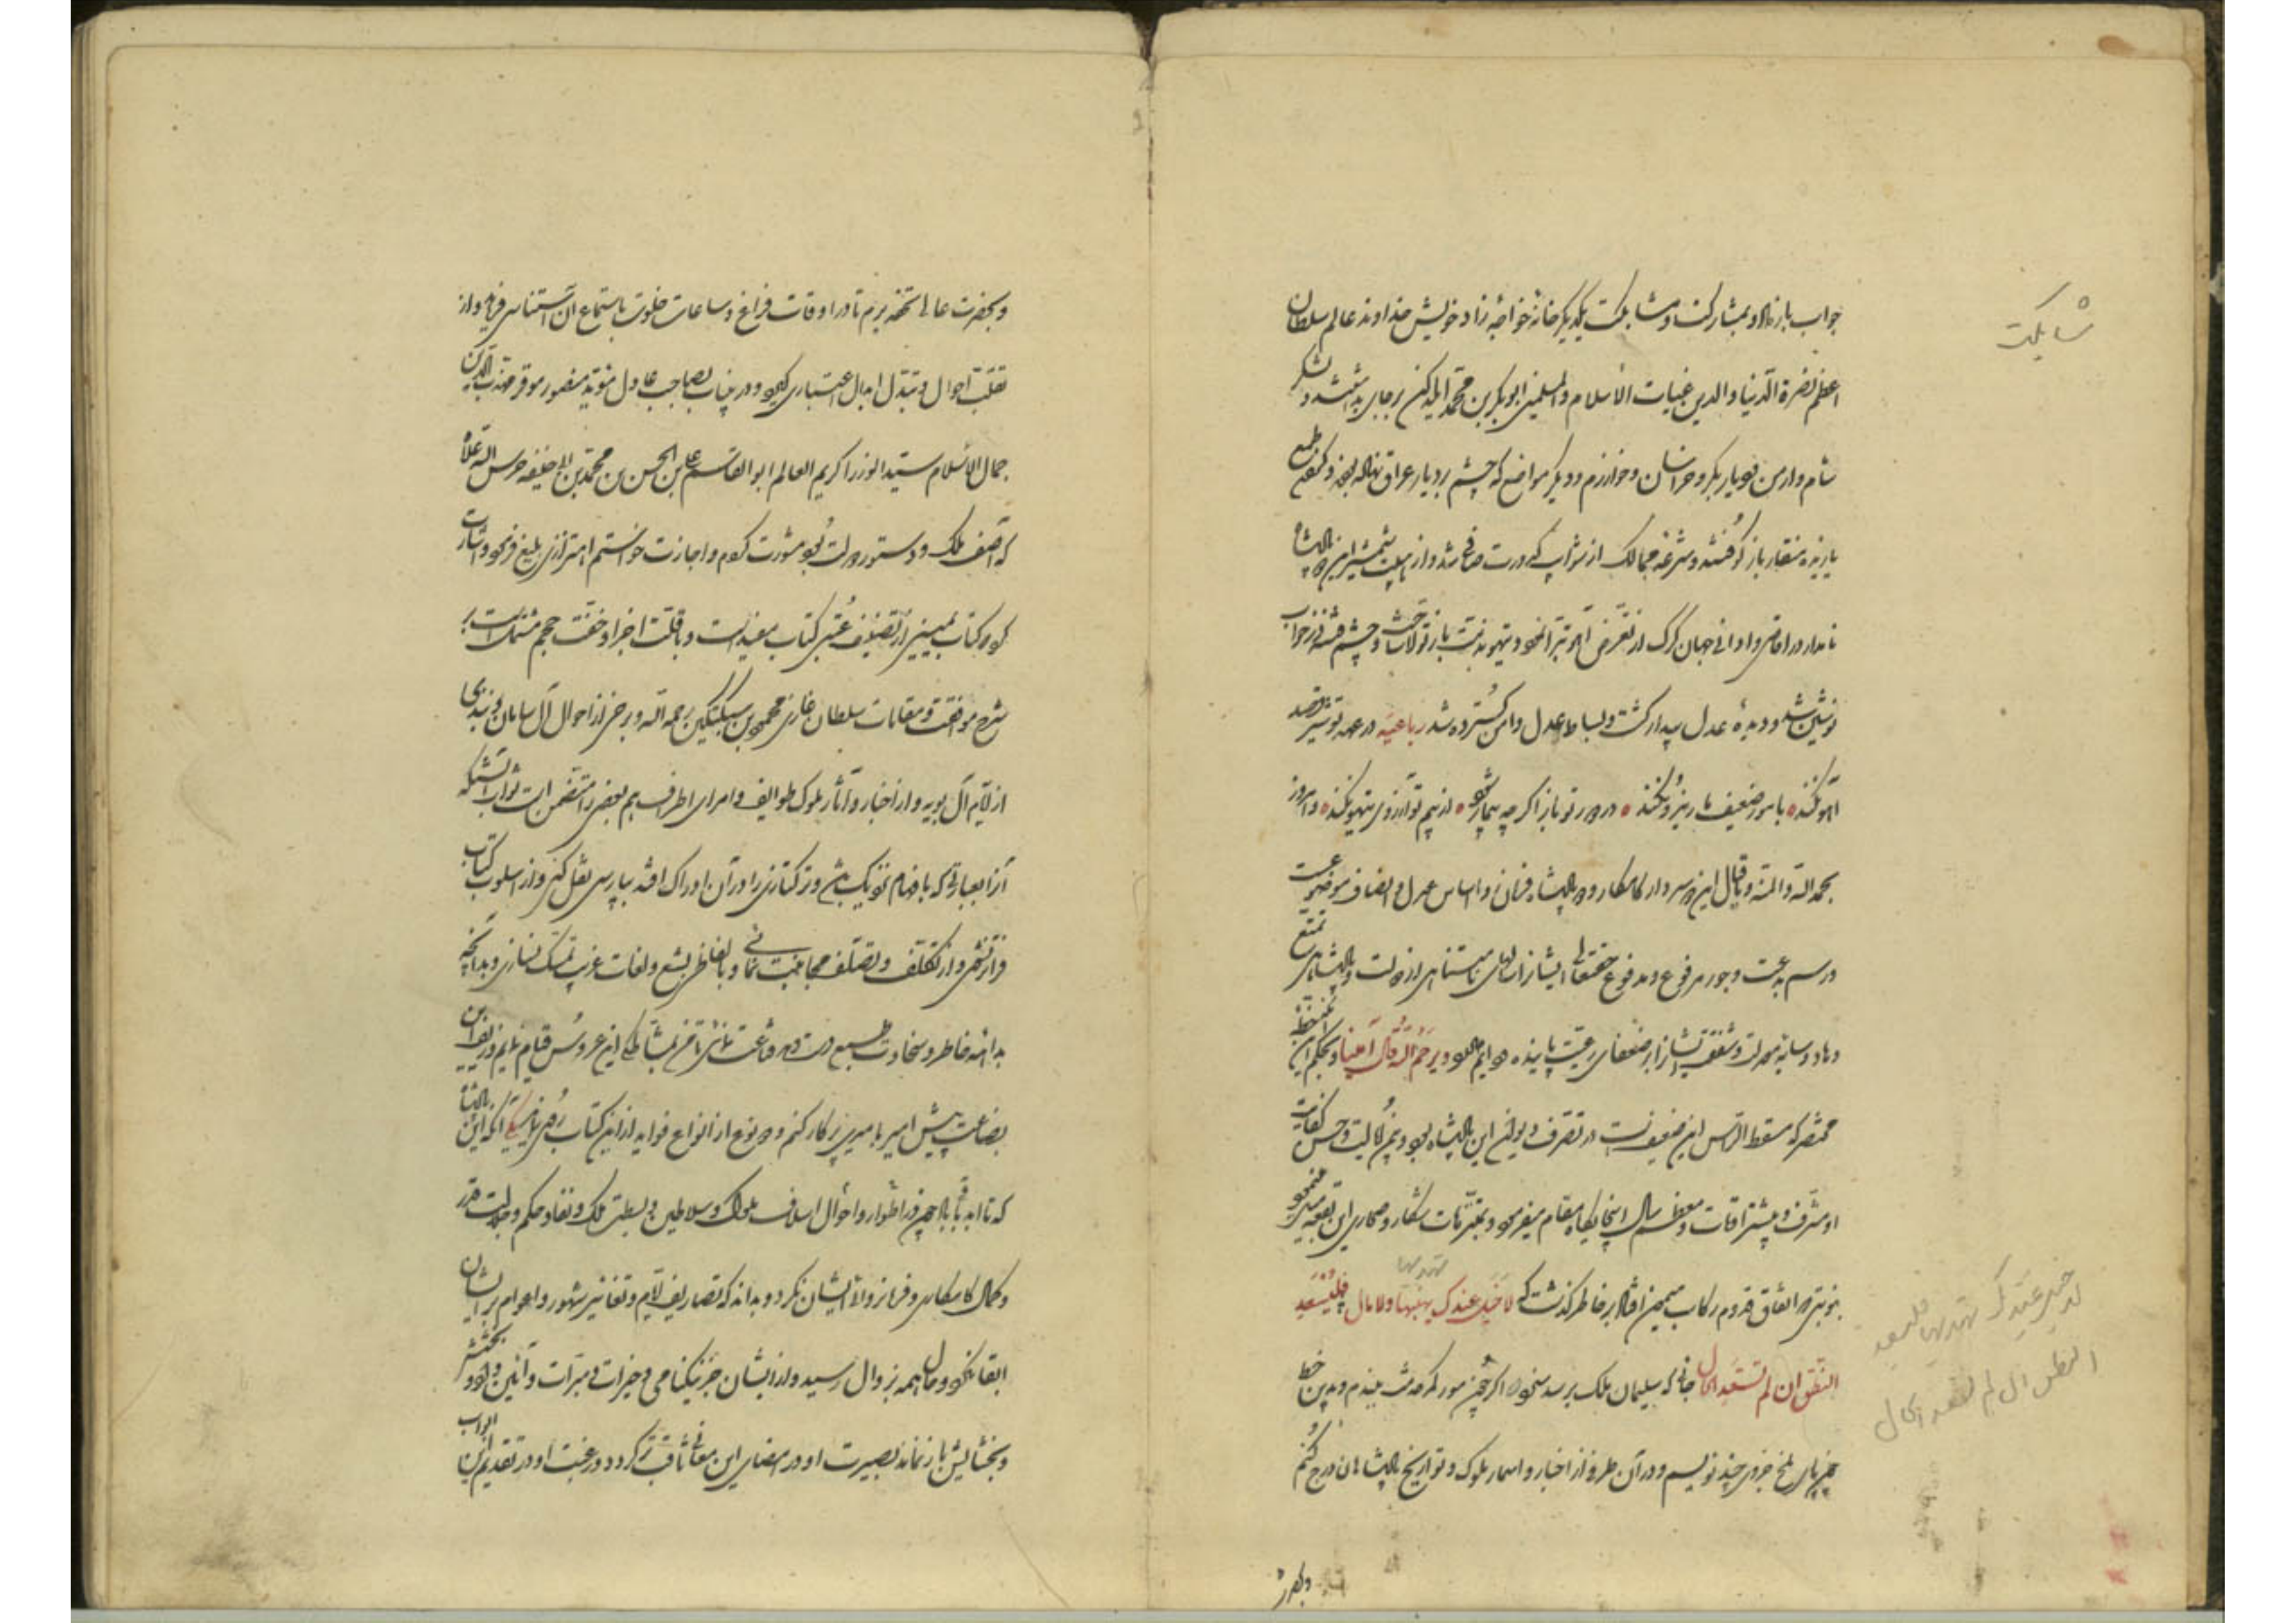 جواب باز داد و بمشارکت و مشابکت یکدیگر خانه خواجه زاد خویش خداوند عالم سلطان
اعظم نصرة الدنیا و الدین غیاث الاسلام و المسلمین ابوبکر بن محمد ایلدکز برجای بداشت و لشکر
شام و ارمن و دیار بکر و خراسان و خوارزم و دیگر مواضع که چشم بر دیار عراق نهاده بودند و کفهٔ طمع
یازیده منقار باز کوفتند و مشرعه ممالک از شوایب کدورت صافی شد و از هیبت شمشیر این پادشاه
نامدار در اقاصی و ادانی جهان گرگ از تعرض آهو تبرا نمود و تیهو بدنب باز تولا ساخت و چشم فتنه در خواب
نوشین شد و دیدهٔ عدل بیدار گشت و بساط عدل و امن گسترده شد رباعیه در عهد تو شیر قصد
آهو نکند با مور ضعیف مار نیرو نکند در دور تو باز اگر چه بیمار شود از بیم تو آرزوی تیهو نکند و امروز
بحمد الله و المنه و باقبال این دو سردار کامکار و دو پادشاه فرمان ده اساس عدل و انصاف موضوعست
و رسم بدعت و جور مرفوع و مدفوع حقتعالی ایشانرا سالهای نامتناهی از دولت و پادشاهی تمتع
دهاد و سایه معدلت و شفقت ایشانرا بر ضعفای رعیت پاینده و دایم داراد و یرحم الله من قال آمینا و بحکم این
مختصر که مسقط الراس این ضعیف است در تصرف دیوان این پادشاه بود و بیمن ایالت و حسن کفایت
او مشرف و بیشتر اوقات و معظم سال اینجایگاه مقام میفرمود و بمتنزهات شکار و صحاری این بقعه میل مینمود
بنوبتی در اتفاق قدوم رکاب میمون اندر خاطر گذشت که لا خیل عندک تهدیها و لا مال فلیسعد
النطق ان لم تسعد الحال جائی که سلیمان ملک برسد نخواه اگر چون مور کمر خدمت بندم و بدین خط
چون پای ملخ جزوی چند نویسم و در آن طرفی از اخبار و اسمار ملوک و تواریخ پادشاهان درج کنم
و بحضرت
شابکت
لا خیل عندک تهدیها فلیسعد
النطق ان لم تسعد الحال
و بحضرت عالی تحفه برم تا در اوقات فراغ و ساعات خلوت باستماع آن استیناس فرماید و از
تقلب احوال و تبدل ابدال اعتباری گیرد و درین باب بصاحب عادل مؤید منصور موقر مهذب الدین
جمال الاسلام سید الوزرا کریم العالم ابو القاسم علی بن الحسن بن محمد بن ابی حنیفه حرس الله علاه
که آصف ملک و دستور دولت بود مشورت کردم و اجازت خواستم اهتزازی بلیغ فرمود و اشارت
کرد که کتاب یمینی از تصنیف عتبی کتاب مفید است و با قلت اجزا و خفت حجم مشتمل است بر
شرح مواقف و مقامات سلطان غازی محمود بن سبکتکین رحمه الله و برخی از احوال آل سامان و نبذی
از ایام آل بویه و از اخبار و آثار ملوک طوایف و امرای اطراف هم بعضی را متضمن است صواب آنستکه
آنرا بعبارتی که بافهام نزدیک باشد و ترک و تازی را در آن ادراک افتد بپارسی نقل کنی و از اسلوب کتاب
فراتر نشوی و از تکلف و تصلف مجانبت نمائی و بالفاظ بشع و لغات غریب تمسک نسازی و بدانچه
بداهه خاطر و سخاوت طبع دست دهد قناعت نمائی تا من بمشاطگی این عروس قیام نمایم و زیف این
بضاعت پیش امیر بامیری بر کار کنم و دو نوع از انواع فواید از این کتاب روی نماید یکی آنکه این پادشاه
که تا ابد باد چون در اطوار و احوال اسلاف ملوک و سلاطین و بسطت ملک و نفاذ حکم و جلالت قدر
و کمال کامکاری و فرمانروائی ایشان نگرد و بداند که تصاریف ایام و تغایر شهور و اعوام بر ایشان
ابقا نکرد و مآل همه بزوال رسید و از ایشان جز نیکنامی و خیرات و مبرات و آئین داد و بخشش
و بخشایش باز نماند بصیرت او در امضای این معانی ثاقب تر گردد و رغبت او در تقدیم این ابواب